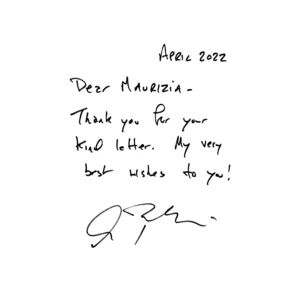 April 2022
Dear Maurizia -
Thank you for your
kind letter. My very
best wishes to you!